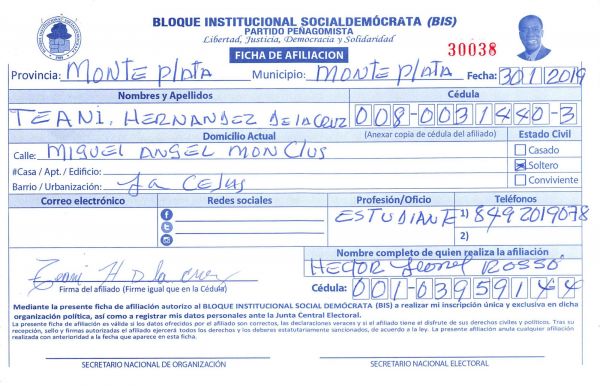 BLOQUE INSTITUCIONAL SOCIALDEMÓCRATA (BIS)
PARTIDO PEÑAGOMISTA
Libertad, Justicia, Democracia y Solidaridad
FICHA DE AFILIACION
30038
Provincia: MONTE PLATA Municipio: MONTE PLATA Fecha: 30/1/2019
Nombres y Apellidos Cédula
TEANI, HERNANDEZ DE LA CRUZ 008-0031440-3
Domicilio Actual (Anexar copia de cédula del afiliado) Estado Civil
Calle: MIGUEL ANGEL MONCIUS
Casado
#Casa / Apt. / Edificio:
Soltero
Barrio / Urbanización: La
Conviviente
Correo electrónico Redes sociales Profesión/Oficio Teléfonos
ESTUDIANTE 1) 8492019078
2)
Nombre completo de quien realiza la afiliación
HECTOR Leonel ROSSÓ
Firma del afiliado (Firme igual que en la Cédula)
Cédula: 001-03959144
Mediante la presente ficha de afiliación autorizo al BLOQUE INSTITUCIONAL SOCIAL DEMÓCRATA (BIS) a realizar mi inscripción única y exclusiva en dicha
organización política, así como a registrar mis datos personales ante la Junta Central Electoral.
La presente ficha de afiliación es válida si los datos ofrecidos por el afiliado son correctos, las declaraciones veraces y si el afiliado tiene el disfrute de sus derechos civiles y políticos. Tras su
recepción, sello y firmas autorizadas el afiliado ejercerá todos los derechos y los deberes estatutariamente sancionados, de acuerdo a la ley. La presente afiliación anula cualquier afiliación
realizada con anterioridad a la fecha que aparece en esta ficha.
SECRETARIO NACIONAL DE ORGANIZACIÓN SECRETARIO NACIONAL ELECTORAL